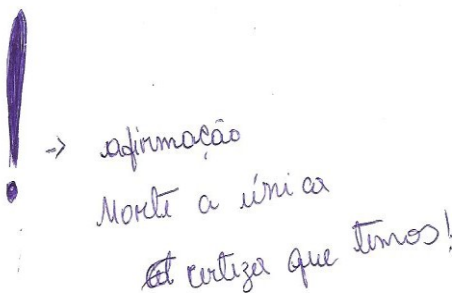 ! → afirmação
Morte a única
certeza que temos!